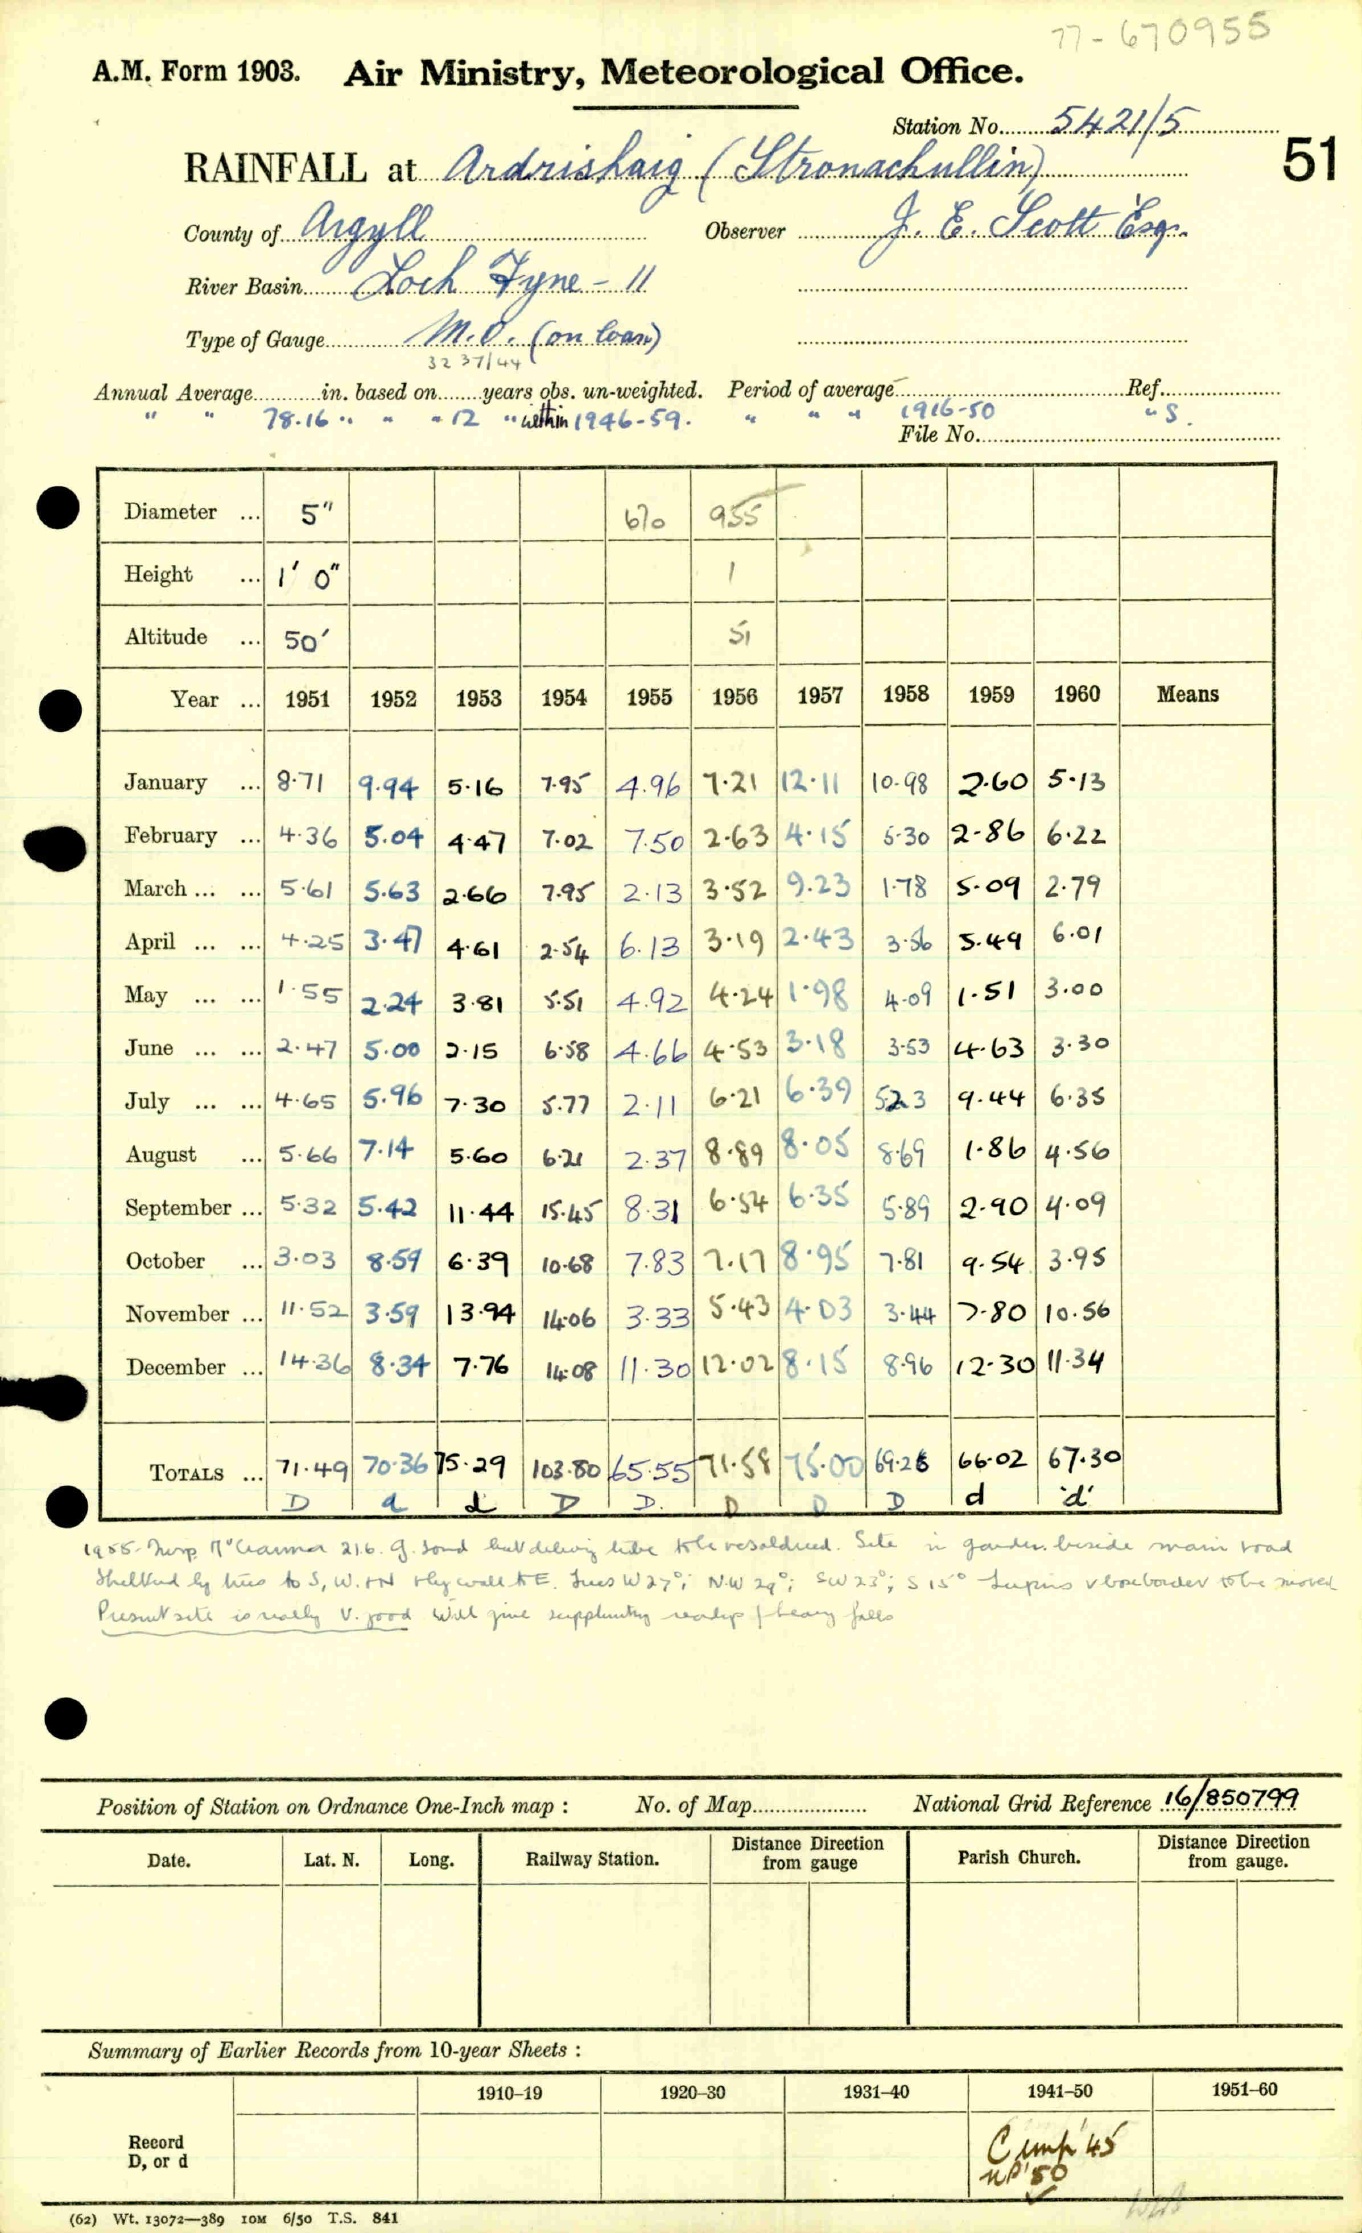 77-670955
A.M. Form 1903. Air Ministry, Meteorological Office.
Station No. 5421/5
51
RAINFALL at Ardrishaig (Stronachullin)
County of Argyll Observer J. E. Scott Esq.
River Basin Loch Fyne - 11
Type of Gauge M.O. (on loan)
3237/44
Annual Average in. based on years obs. un-weighted. Period of average Ref.
" " 78.16 " " " 12 " within 1946-59. " " " 1916-50 " S.
File No.
Diameter ... 5" 670 955
Height ... 1' 0" 1
Altitude ... 50' 51
Year ... 1951 1952 1953 1954 1955 1956 1957 1958 1959 1960 Means
January ... 8.71 9.94 5.16 7.95 4.96 7.21 12.11 10.98 2.60 5.13
February ... 4.36 5.04 4.47 7.02 7.50 2.63 4.15 5.30 2.86 6.22
March ... ... 5.61 5.63 2.66 7.95 2.13 3.52 9.23 1.78 5.09 2.79
April ... ... 4.25 3.47 4.61 2.54 6.13 3.19 2.43 3.56 5.49 6.01
May ... ... 1.55 2.24 3.81 5.51 4.92 4.24 1.98 4.09 1.51 3.00
June ... ... 2.47 5.00 2.15 6.58 4.66 4.53 3.18 3.53 4.63 3.30
July ... ... 4.65 5.96 7.30 5.77 2.11 6.21 6.39 5.23 9.44 6.35
August ... 5.66 7.14 5.60 6.21 2.37 8.89 8.05 8.69 1.86 4.56
September ... 5.32 5.42 11.44 15.45 8.31 6.54 6.35 5.89 2.90 4.09
October ... 3.03 8.59 6.39 10.68 7.83 7.17 8.95 7.81 9.54 3.95
November ... 11.52 3.59 13.94 14.06 3.33 5.43 4.03 3.44 7.80 10.56
December ... 14.36 8.34 7.76 14.08 11.30 12.02 8.15 8.96 12.30 11.34
TOTALS ... 71.49 70.36 75.29 103.80 65.55 71.58 75.00 69.26 66.02 67.30
D d d D D. D D D d 'd'
1955 Insp 21.6. G. sound but tube to be resoldered. Site in garden beside main road
Sheltered by trees to S, W. + N + by wall to E. Trees W 27°; NW 29°; SW 23°; S 15° Lupins + border to be moved
Present site is really v. good Will give supplementary readings of heavy falls
Position of Station on Ordnance One-Inch map : No. of Map National Grid Reference 16/850799
Date. Lat. N. Long. Railway Station. Distance from gauge Direction Parish Church. Distance from gauge. Direction
Summary of Earlier Records from 10-year Sheets :
1910–19 1920–30 1931–40 1941–50 1951–60
Record D, or d
'45
'50
(62) Wt. 13072—389 10M 6/50 T.S. 841